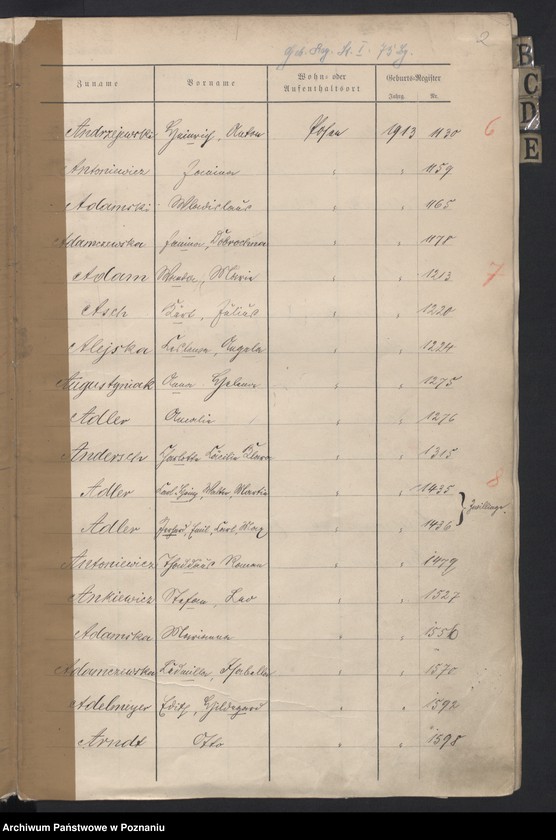 2
Zuname Vorname Wohn- oder Aufenthaltsort Geburts-Register
Jahrg. Nr.
Andrzejewski Heinrich, Anton Posen 1913 1130 6
Antoniewicz Janina " " 1159
Adamski Wladislaus " " 1165
Adamczewska Janina, Dobrochna " " 1178
Adam Wanda, Maria " " 1213 7
Asch Karl, Julius " " 1220
Alejska Angela " " 1224
Augustyniak Anna Helena " " 1275
Adler Amalie " " 1276
Andersch Charlotte Cäcilie Klara " " 1315
Adler Karl Walter, Martin " " 1435 8
Zwillinge.
Adler Gerhard, Emil, Karl, Max " " 1436
Antoniewicz Thaddäus Roman " " 1479
Ankiewicz Stefan, Leo " " 1527
Adamska Marianna " " 1556
Adamczewska Ludmilla, Isabella " " 1570
Adelmeyer Edith, Hildegard " " 1592
Arndt Otto " " 1598
B
C
D
E
Archiwum Państwowe w Poznaniu